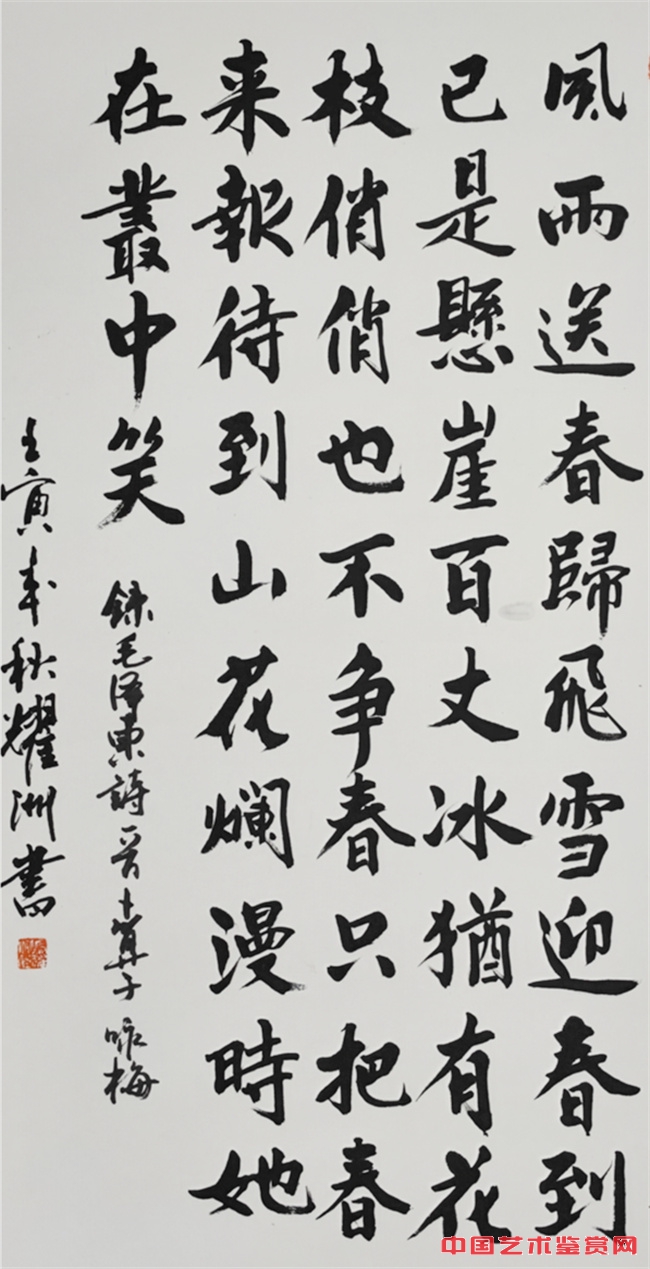 風雨送春歸飛雪迎春到
已是懸崖百丈冰猶有花
枝俏俏也不争春只把春
来報待到山花爛漫時她
在叢中笑
錄毛泽東詩一首卜算子咏梅
壬寅年秋耀洲書
中国艺术鉴赏网